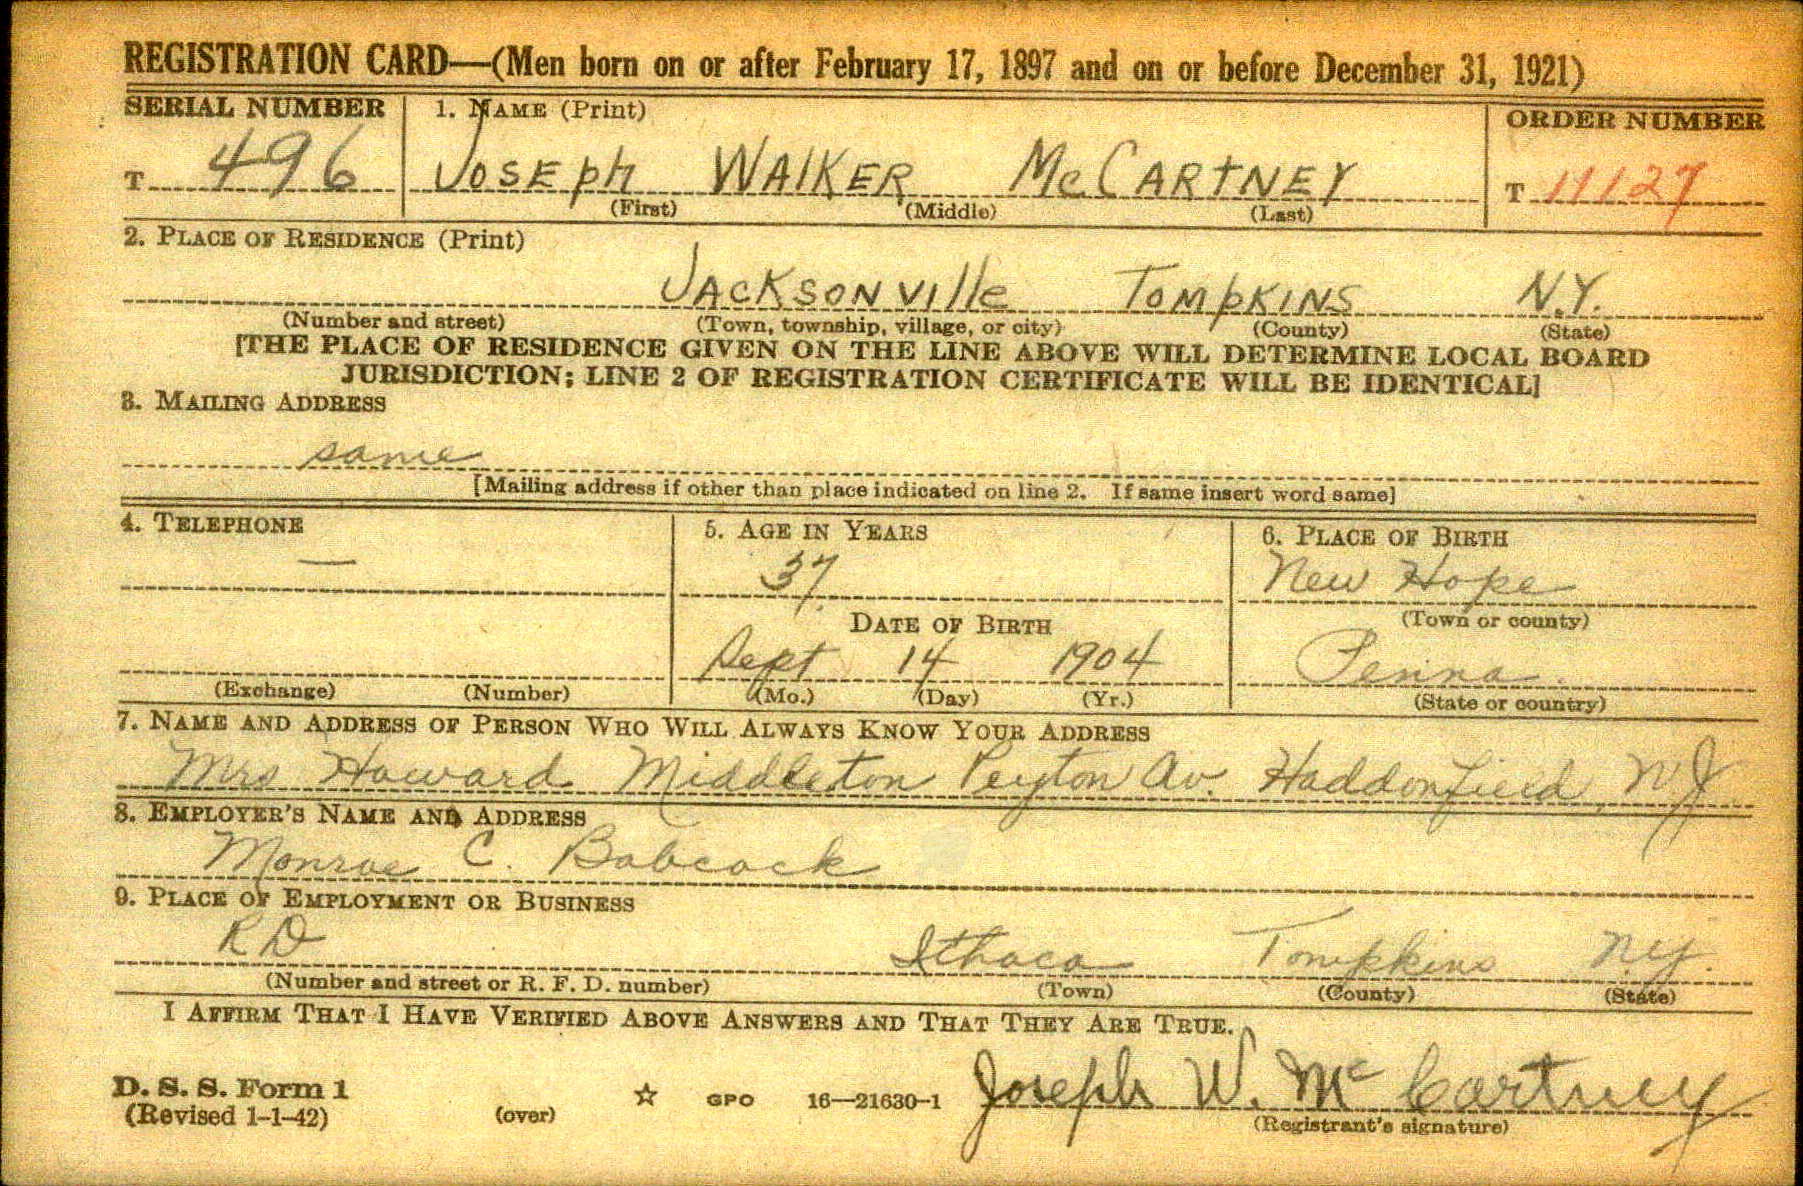 REGISTRATION CARD—(Men born on or after February 17, 1897 and on or before December 31, 1921)
SERIAL NUMBER 1. NAME (Print) ORDER NUMBER
T 496 JOSEPh WAlKER McCARTNEY T 11127
(First) (Middle) (Last)
2. PLACE OF RESIDENCE (Print)
JACKSONVIlle TOMpKINS N.Y.
(Number and street) (Town, township, village, or city) (County) (State)
[THE PLACE OF RESIDENCE GIVEN ON THE LINE ABOVE WILL DETERMINE LOCAL BOARD
JURISDICTION; LINE 2 OF REGISTRATION CERTIFICATE WILL BE IDENTICAL]
3. MAILING ADDRESS
same
[Mailing address if other than place indicated on line 2. If same insert word same]
4. TELEPHONE 5. AGE IN YEARS 6. PLACE OF BIRTH
— 37 New Hope
(Town or county)
DATE OF BIRTH
Sept 14 1904 Penna.
(Exchange) (Number) (Mo.) (Day) (Yr.) (State or country)
7. NAME AND ADDRESS OF PERSON WHO WILL ALWAYS KNOW YOUR ADDRESS
Mrs Howard Middleton Peyton Av. Haddonfield, N.J.
8. EMPLOYER'S NAME AND ADDRESS
Monroe C. Babcock
9. PLACE OF EMPLOYMENT OR BUSINESS
RD Ithaca Tompkins N.Y.
(Number and street or R. F. D. number) (Town) (County) (State)
I AFFIRM THAT I HAVE VERIFIED ABOVE ANSWERS AND THAT THEY ARE TRUE.
D. S. S. Form 1
(Revised 1-1-42) (over) ☆ GPO 16—21630-1 Joseph W. McCartney
(Registrant's signature)